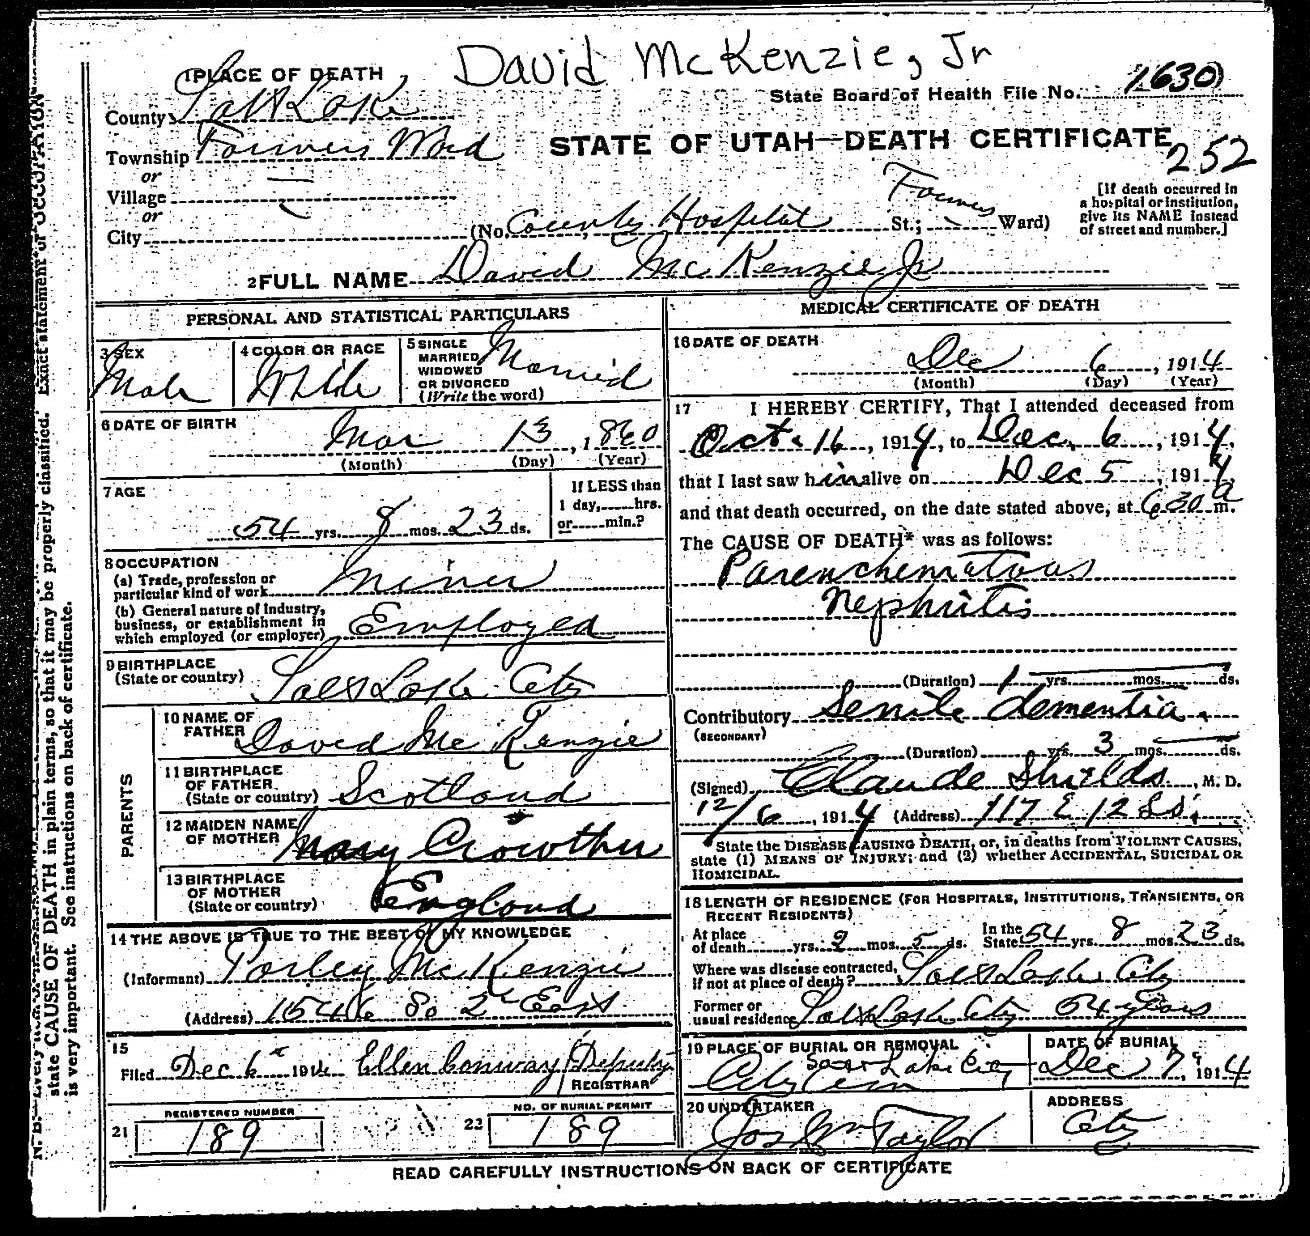 David McKenzie, Jr
1 PLACE OF DEATH
County Salt Lake
State Board of Health File No. 1630
Township Farmers Ward
STATE OF UTAH—DEATH CERTIFICATE
252
or
Village
or
City (No. County Hospital St.; Farmers Ward)
[If death occurred in
a hospital or institution,
give its NAME instead
of street and number.]
2 FULL NAME David McKenzie Jr
PERSONAL AND STATISTICAL PARTICULARS
3 SEX
Male
4 COLOR OR RACE
White
5 SINGLE
MARRIED
WIDOWED
OR DIVORCED
(Write the word)
Married
6 DATE OF BIRTH
Mar 13, 1860
(Month) (Day) (Year)
7 AGE
54 yrs. 8 mos. 23 ds.
If LESS than
1 day,......hrs.
or......min.?
8 OCCUPATION
(a) Trade, profession or
particular kind of work Miner
(b) General nature of Industry,
business, or establishment in
which employed (or employer) Employed
9 BIRTHPLACE
(State or country) Salt Lake City
PARENTS
10 NAME OF
FATHER David McKenzie
11 BIRTHPLACE
OF FATHER
(State or country) Scotland
12 MAIDEN NAME
OF MOTHER Mary Crowther
13 BIRTHPLACE
OF MOTHER
(State or country) England
14 THE ABOVE IS TRUE TO THE BEST OF MY KNOWLEDGE
(Informant) Parley McKenzie
(Address) 1546 So 2 East
15
Filed Dec 6 1914 Ellen Conway Deputy
REGISTRAR
REGISTERED NUMBER
21 189
NO. OF BURIAL PERMIT
22 189
MEDICAL CERTIFICATE OF DEATH
16 DATE OF DEATH
Dec 6, 1914
(Month) (Day) (Year)
17 I HEREBY CERTIFY, That I attended deceased from
Oct. 16, 1914, to Dec. 6, 1914,
that I last saw him alive on Dec 5, 1914,
and that death occurred, on the date stated above, at 630 a m.
The CAUSE OF DEATH* was as follows:
Parenchematous
Nephritis
(Duration) 1 yrs. mos. ds.
Contributory Senile dementia.
(SECONDARY)
(Duration) yrs. 3 mos. ds.
(Signed) Claude Shields, M. D.
12/6, 1914 (Address) 117 E 12 So.
State the DISEASE CAUSING DEATH, or, in deaths from VIOLENT CAUSES,
state (1) MEANS OF INJURY; and (2) whether ACCIDENTAL, SUICIDAL OR
HOMICIDAL.
18 LENGTH OF RESIDENCE (FOR HOSPITALS, INSTITUTIONS, TRANSIENTS, OR
RECENT RESIDENTS)
At place
of death yrs. 2 mos. 5 ds.
In the
State 54 yrs. 8 mos. 23 ds.
Where was disease contracted,
If not at place of death? Salt Lake City
Former or
usual residence Salt Lake City 54 years
19 PLACE OF BURIAL OR REMOVAL
Salt Lake City
City Cem
DATE OF BURIAL
Dec 7, 1914
20 UNDERTAKER
Jos Wm Taylor
ADDRESS
City
READ CAREFULLY INSTRUCTIONS ON BACK OF CERTIFICATE
state CAUSE OF DEATH in plain terms, so that it may be properly classified. Exact statement of OCCUPATION
is very important. See instructions on back of certificate.